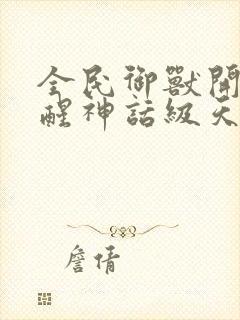 全民御獸開
醒神話級天
詹倩